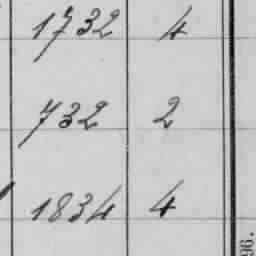 1732 4
732 2
1834 4
96.